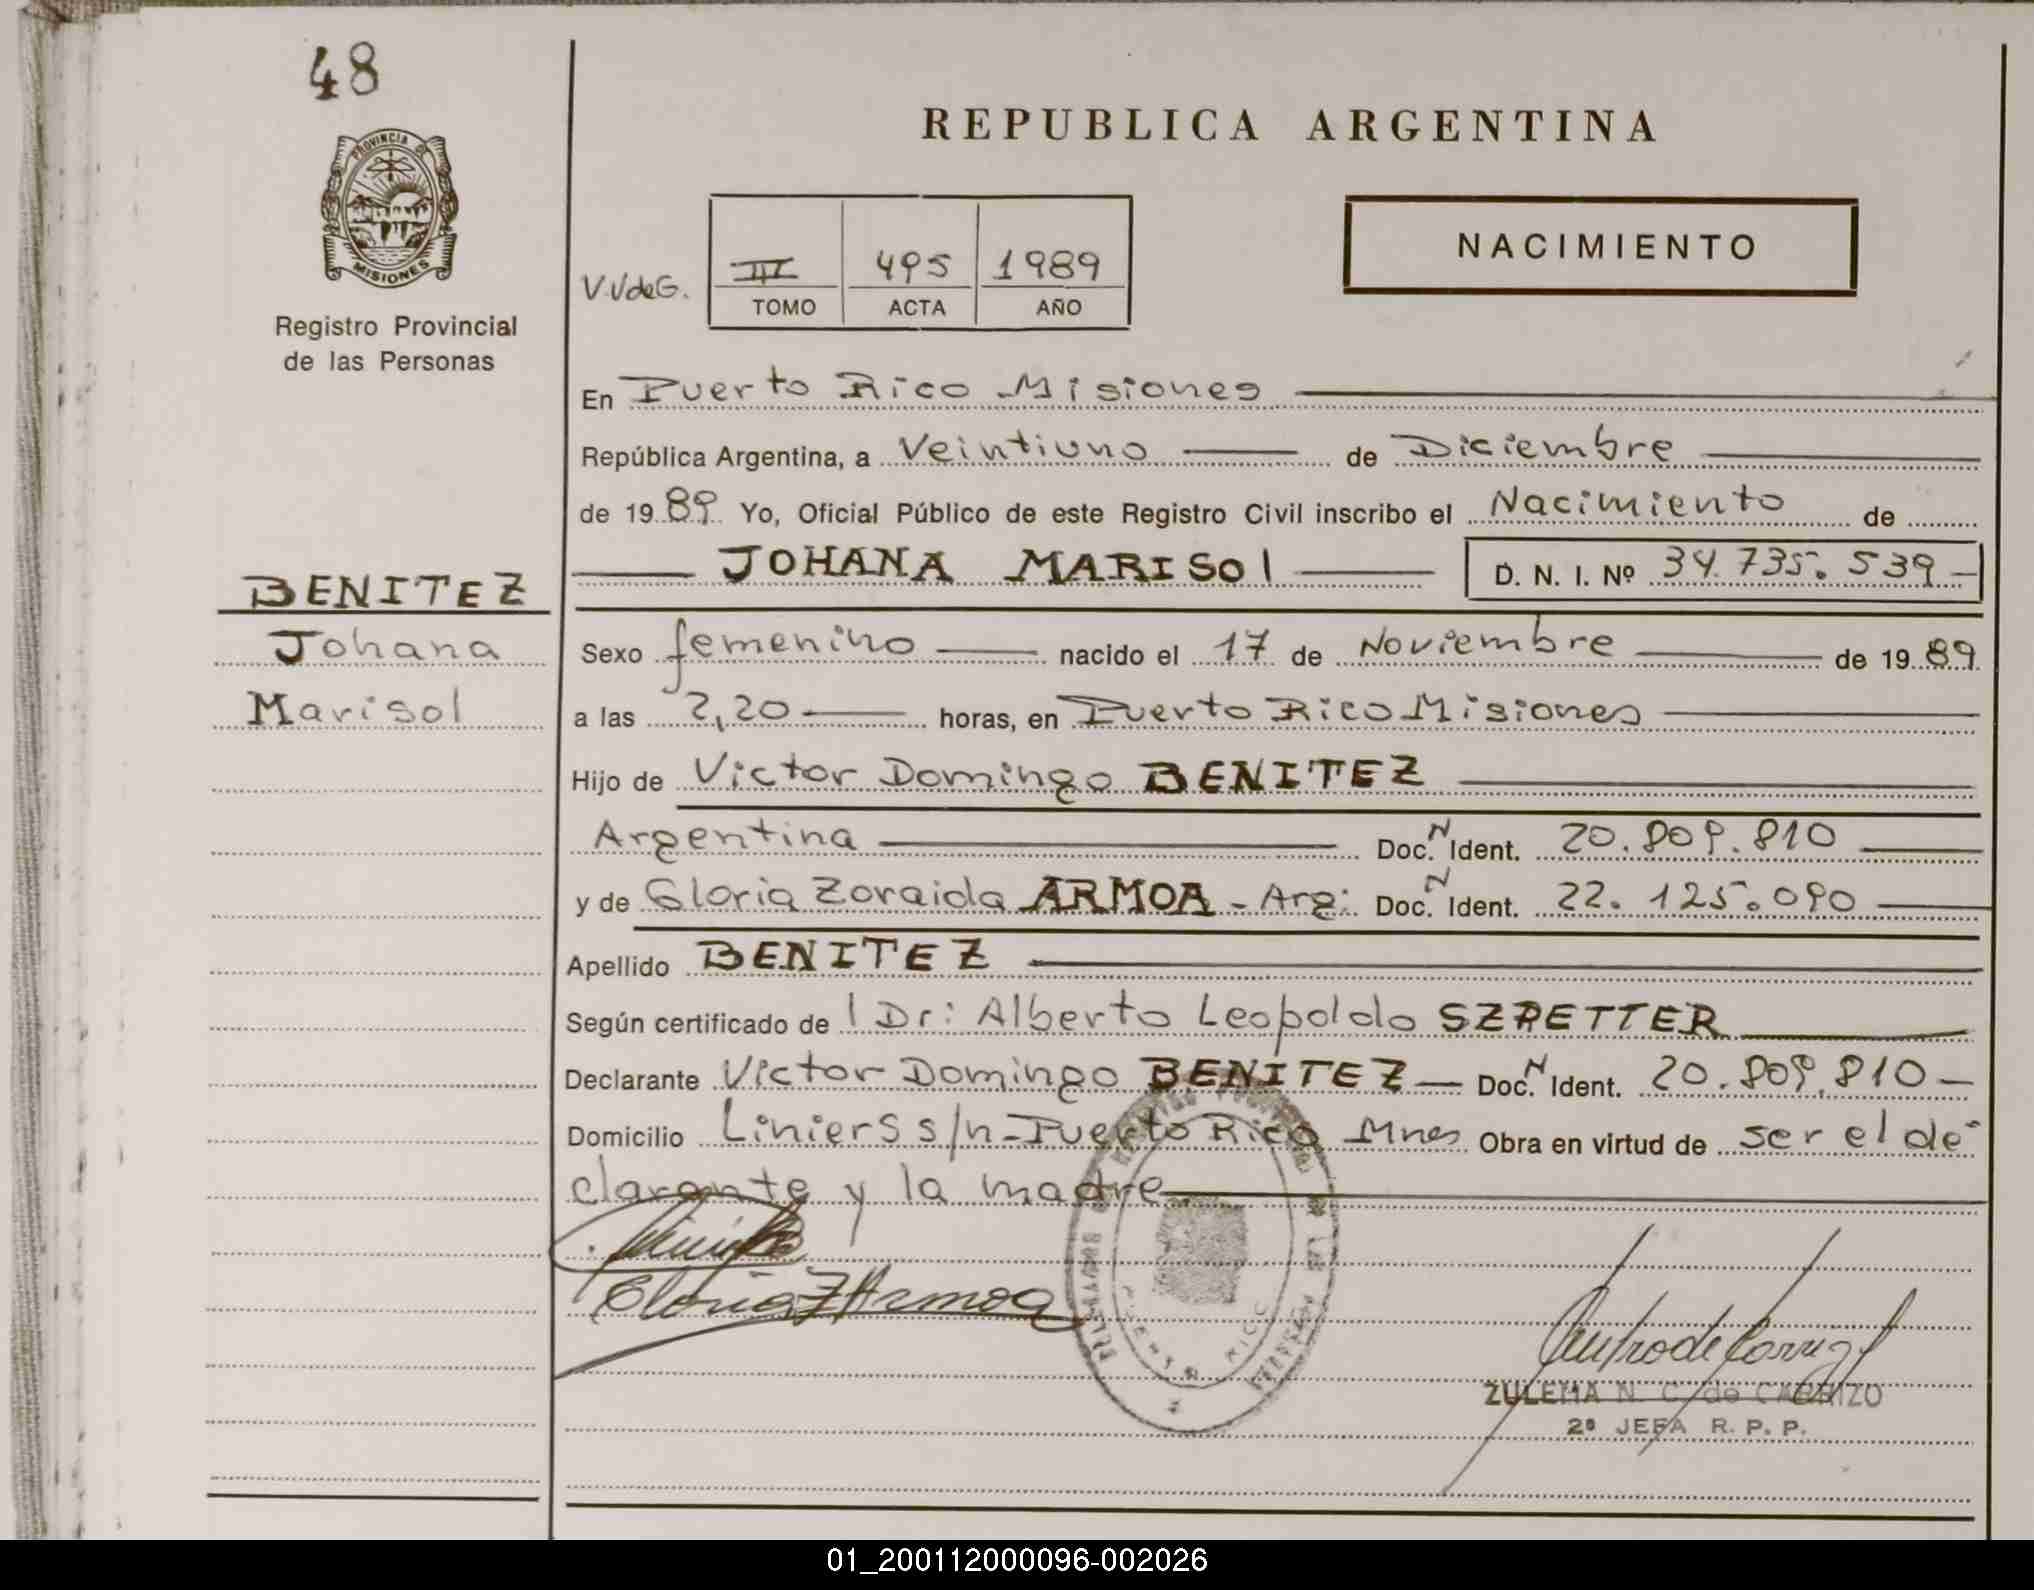 48
PROVINCIA DE
MISIONES
Registro Provincial
de las Personas
REPUBLICA ARGENTINA
V.V de G.
III 495 1989
TOMO ACTA AÑO
NACIMIENTO
En Puerto Rico Misiones
República Argentina, a Veintiuno de Diciembre
de 19 89 Yo, Oficial Público de este Registro Civil inscribo el Nacimiento de
JOHANA MARISOl D. N. I. Nº 34.735.539
BENITEZ
Johana
Marisol
Sexo femenino nacido el 17 de Noviembre de 19 89
a las 2,20 horas, en Puerto Rico Misiones
Hijo de Victor Domingo BENITEZ
Argentina Doc. N Ident. 20.809.810
y de Gloria Zoraida ARMOA - Arg: Doc. N Ident. 22.125.090
Apellido BENITEZ
Según certificado de l Dr: Alberto Leopoldo SZRETTER
Declarante Victor Domingo BENITEZ Doc. N Ident. 20.809.810
Domicilio Liniers s/n - Puerto Rico Mnes Obra en virtud de ser el de
clarante y la madre
Gloria Z Armoa
PUERTO RICO
ZULEMA N. C. de CARRIZO
2ª JEFA R. P. P.
01_200112000096-002026